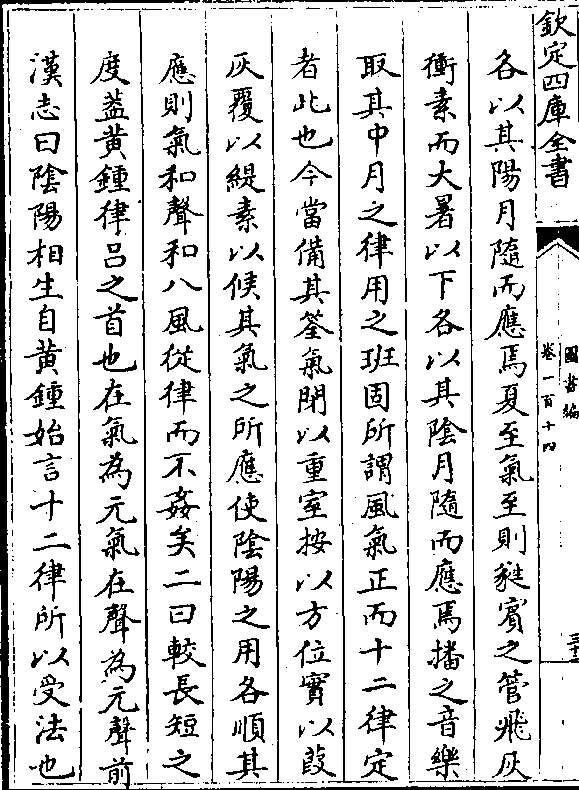 欽定四庫全書
圖書編
卷一百十四
三十二
各以其陽月隨而應焉夏至氣至則蕤賓之管飛灰
衝素而大暑以下各以其陰月隨而應焉播之音樂
取其中月之律用之班固所謂風氣正而十二律定
者此也今當備其筌氣閉以重室按以方位實以葭
灰覆以緹素以候其氣之所應使陰陽之用各順其
應則氣和聲和八風從律而不姦矣二曰較長短之
度蓋黃鍾律呂之首也在氣為元氣在聲為元聲前
漢志曰陰陽相生自黃鍾始言十二律所以受法也